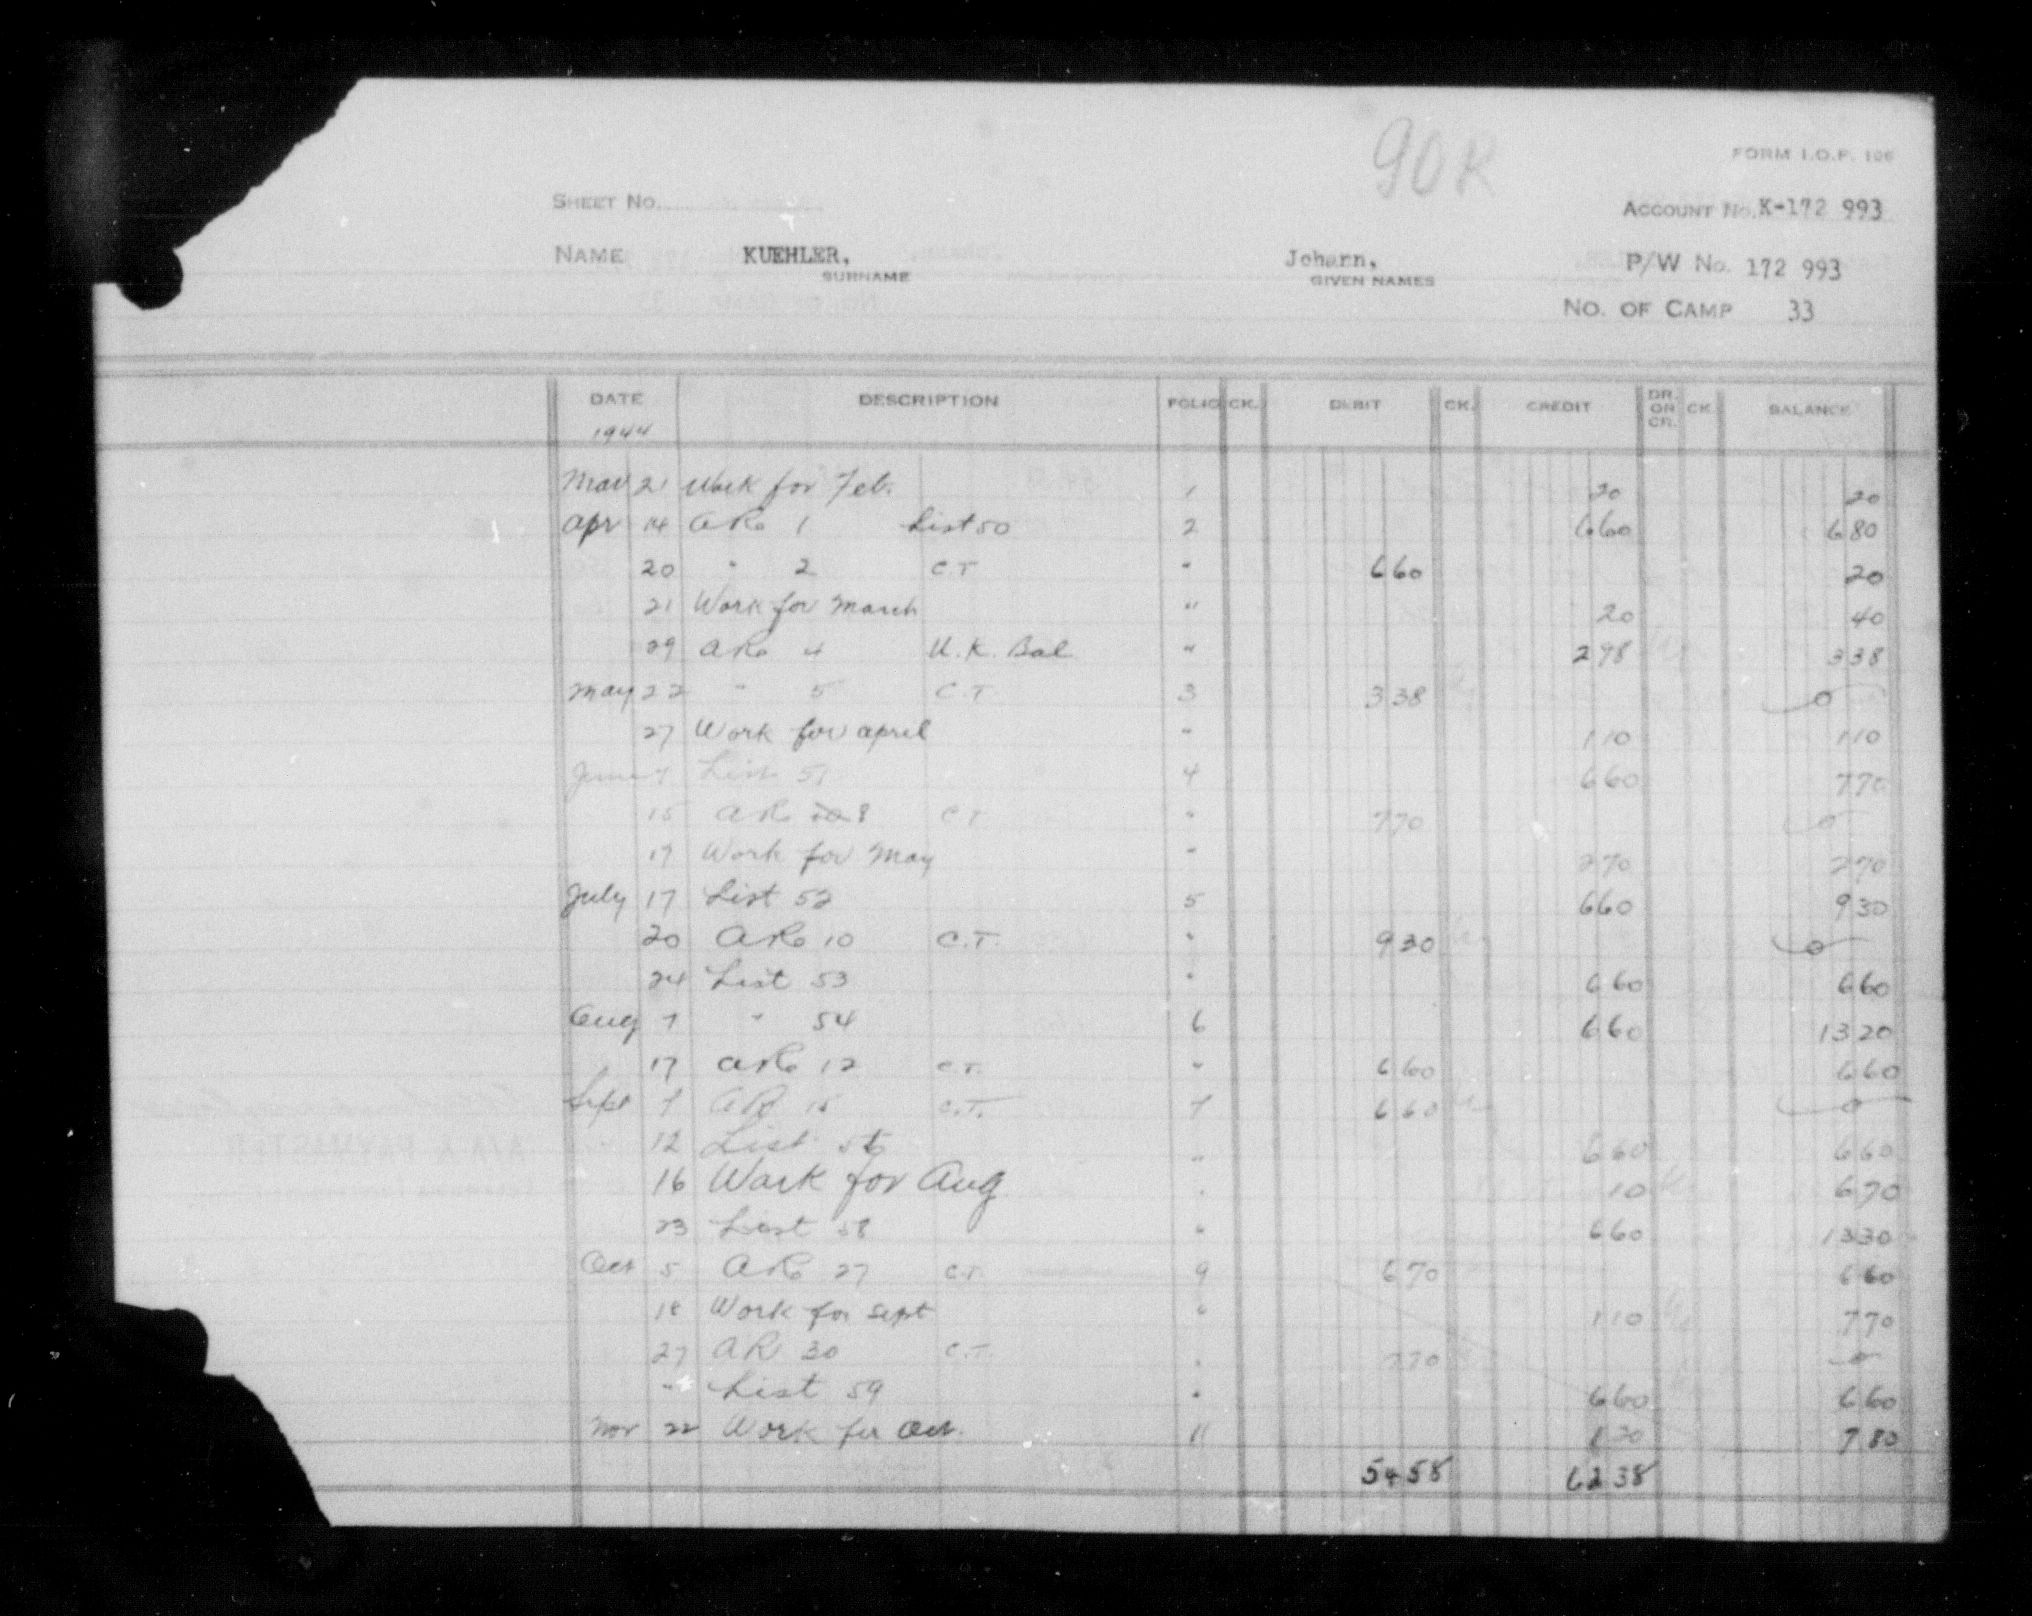 90R
FORM I.O.P. 106
SHEET NO. ACCOUNT NO. K-172 993
NAME KUEHLER, Johann, P/W No. 172 993
SURNAME GIVEN NAMES
NO. OF CAMP 33
DATE DESCRIPTION FOLIO CK. DEBIT CK. CREDIT DR. OR CR. CK. BALANCE
1944
Mar 21 Work for Feb. 1 20 20
Apr 14 AR 1 List 50 2 660 680
20 " 2 C.T " 660 20
21 Work for March " 20 40
29 AR 4 U.K. Bal " 298 338
May 22 " 5 C.T 3 338 0
27 Work for april " 110 110
June 7 List 51 4 660 770
15 AR 8 C T " 770 0
19 Work for May " 270 270
July 17 List 52 5 660 930
20 AR 10 C.T. " 930 0
24 List 53 " 660 660
Aug 7 " 54 6 660 1320
17 AR 12 C.T. " 660 660
Sept 7 AR 15 C.T. 7 660 0
12 List " 660 660
16 Work for Aug " 10 670
23 List 58 " 660 1330
Oct 5 AR 27 C.T. 9 670 660
18 Work for Sept " 110 770
27 AR 30 C.T. " 770 0
" List 59 " 660 660
Nov 22 Work for Oct. 11 120 780
5458 6238